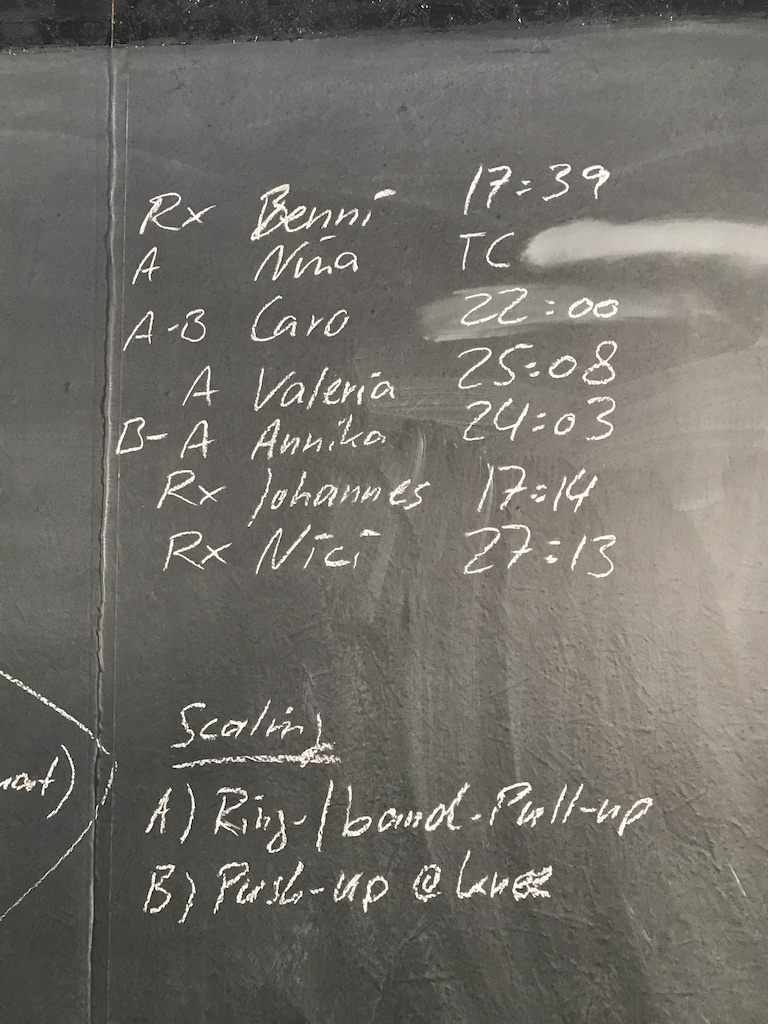 Rx Benni 17:39
A Nina TC
A-B Caro 22:00
A Valeria 25:08
B-A Annika 24:03
Rx Johannes 17:14
Rx Nici 27:13
Scaling
A) Ring-/band-Pull-up
B) Push-up @ knee